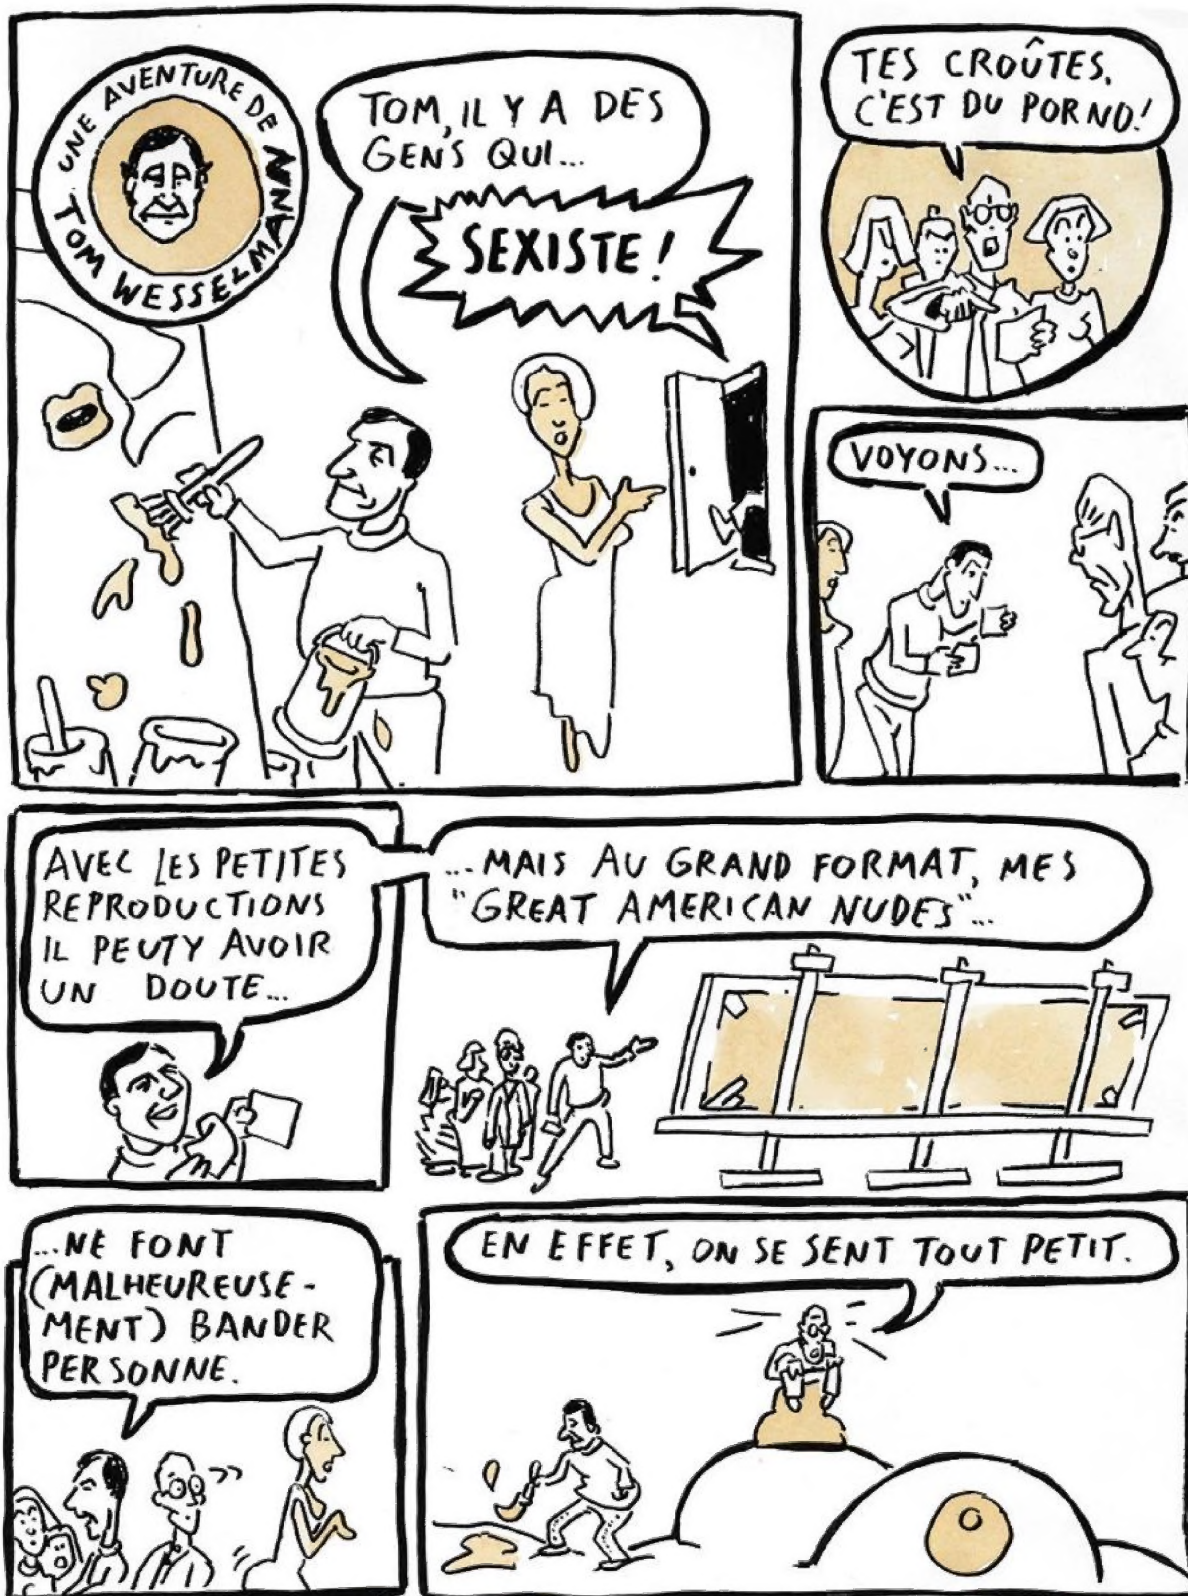 UNE AVENTURE DE
TOM WESSELMANN
TOM, IL Y A DES
GENS QUI...
SEXISTE !
TES CROÛTES,
C'EST DU PORNO!
VOYONS...
AVEC LES PETITES
REPRODUCTIONS
IL PEUT Y AVOIR
UN DOUTE...
...MAIS AU GRAND FORMAT, MES
"GREAT AMERICAN NUDES"...
...NE FONT
(MALHEUREUSE-
MENT) BANDER
PERSONNE.
EN EFFET, ON SE SENT TOUT PETIT.